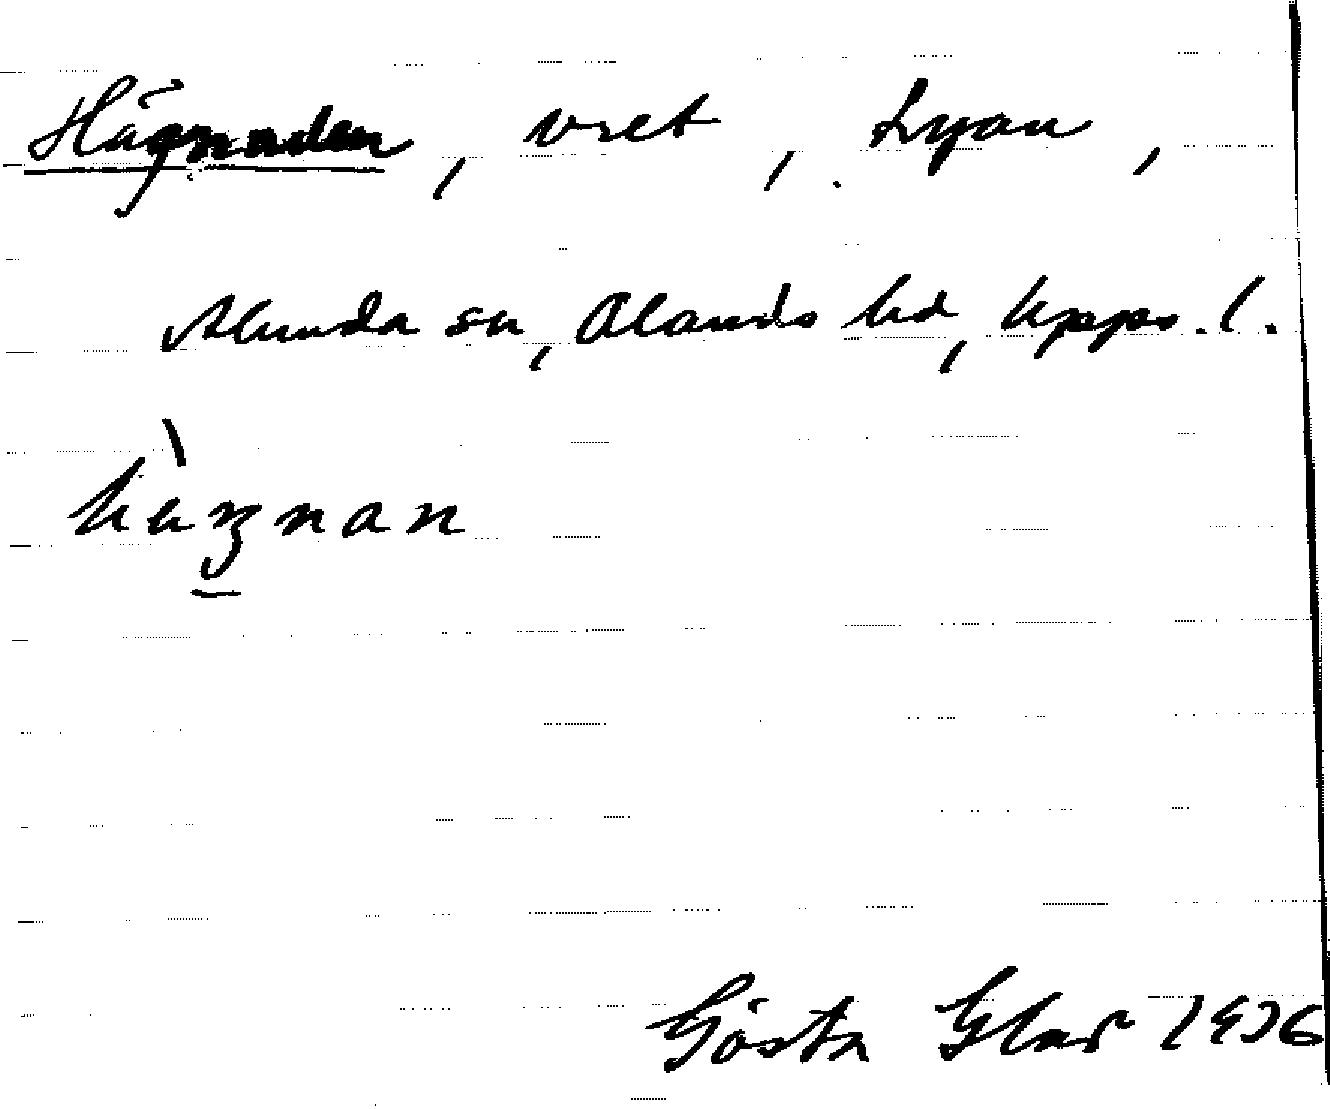 Hägnaden, vret, Lyan,
Alunda sn, Olands hd, Upps. l.
hàgnan
Gösta Glar 1936